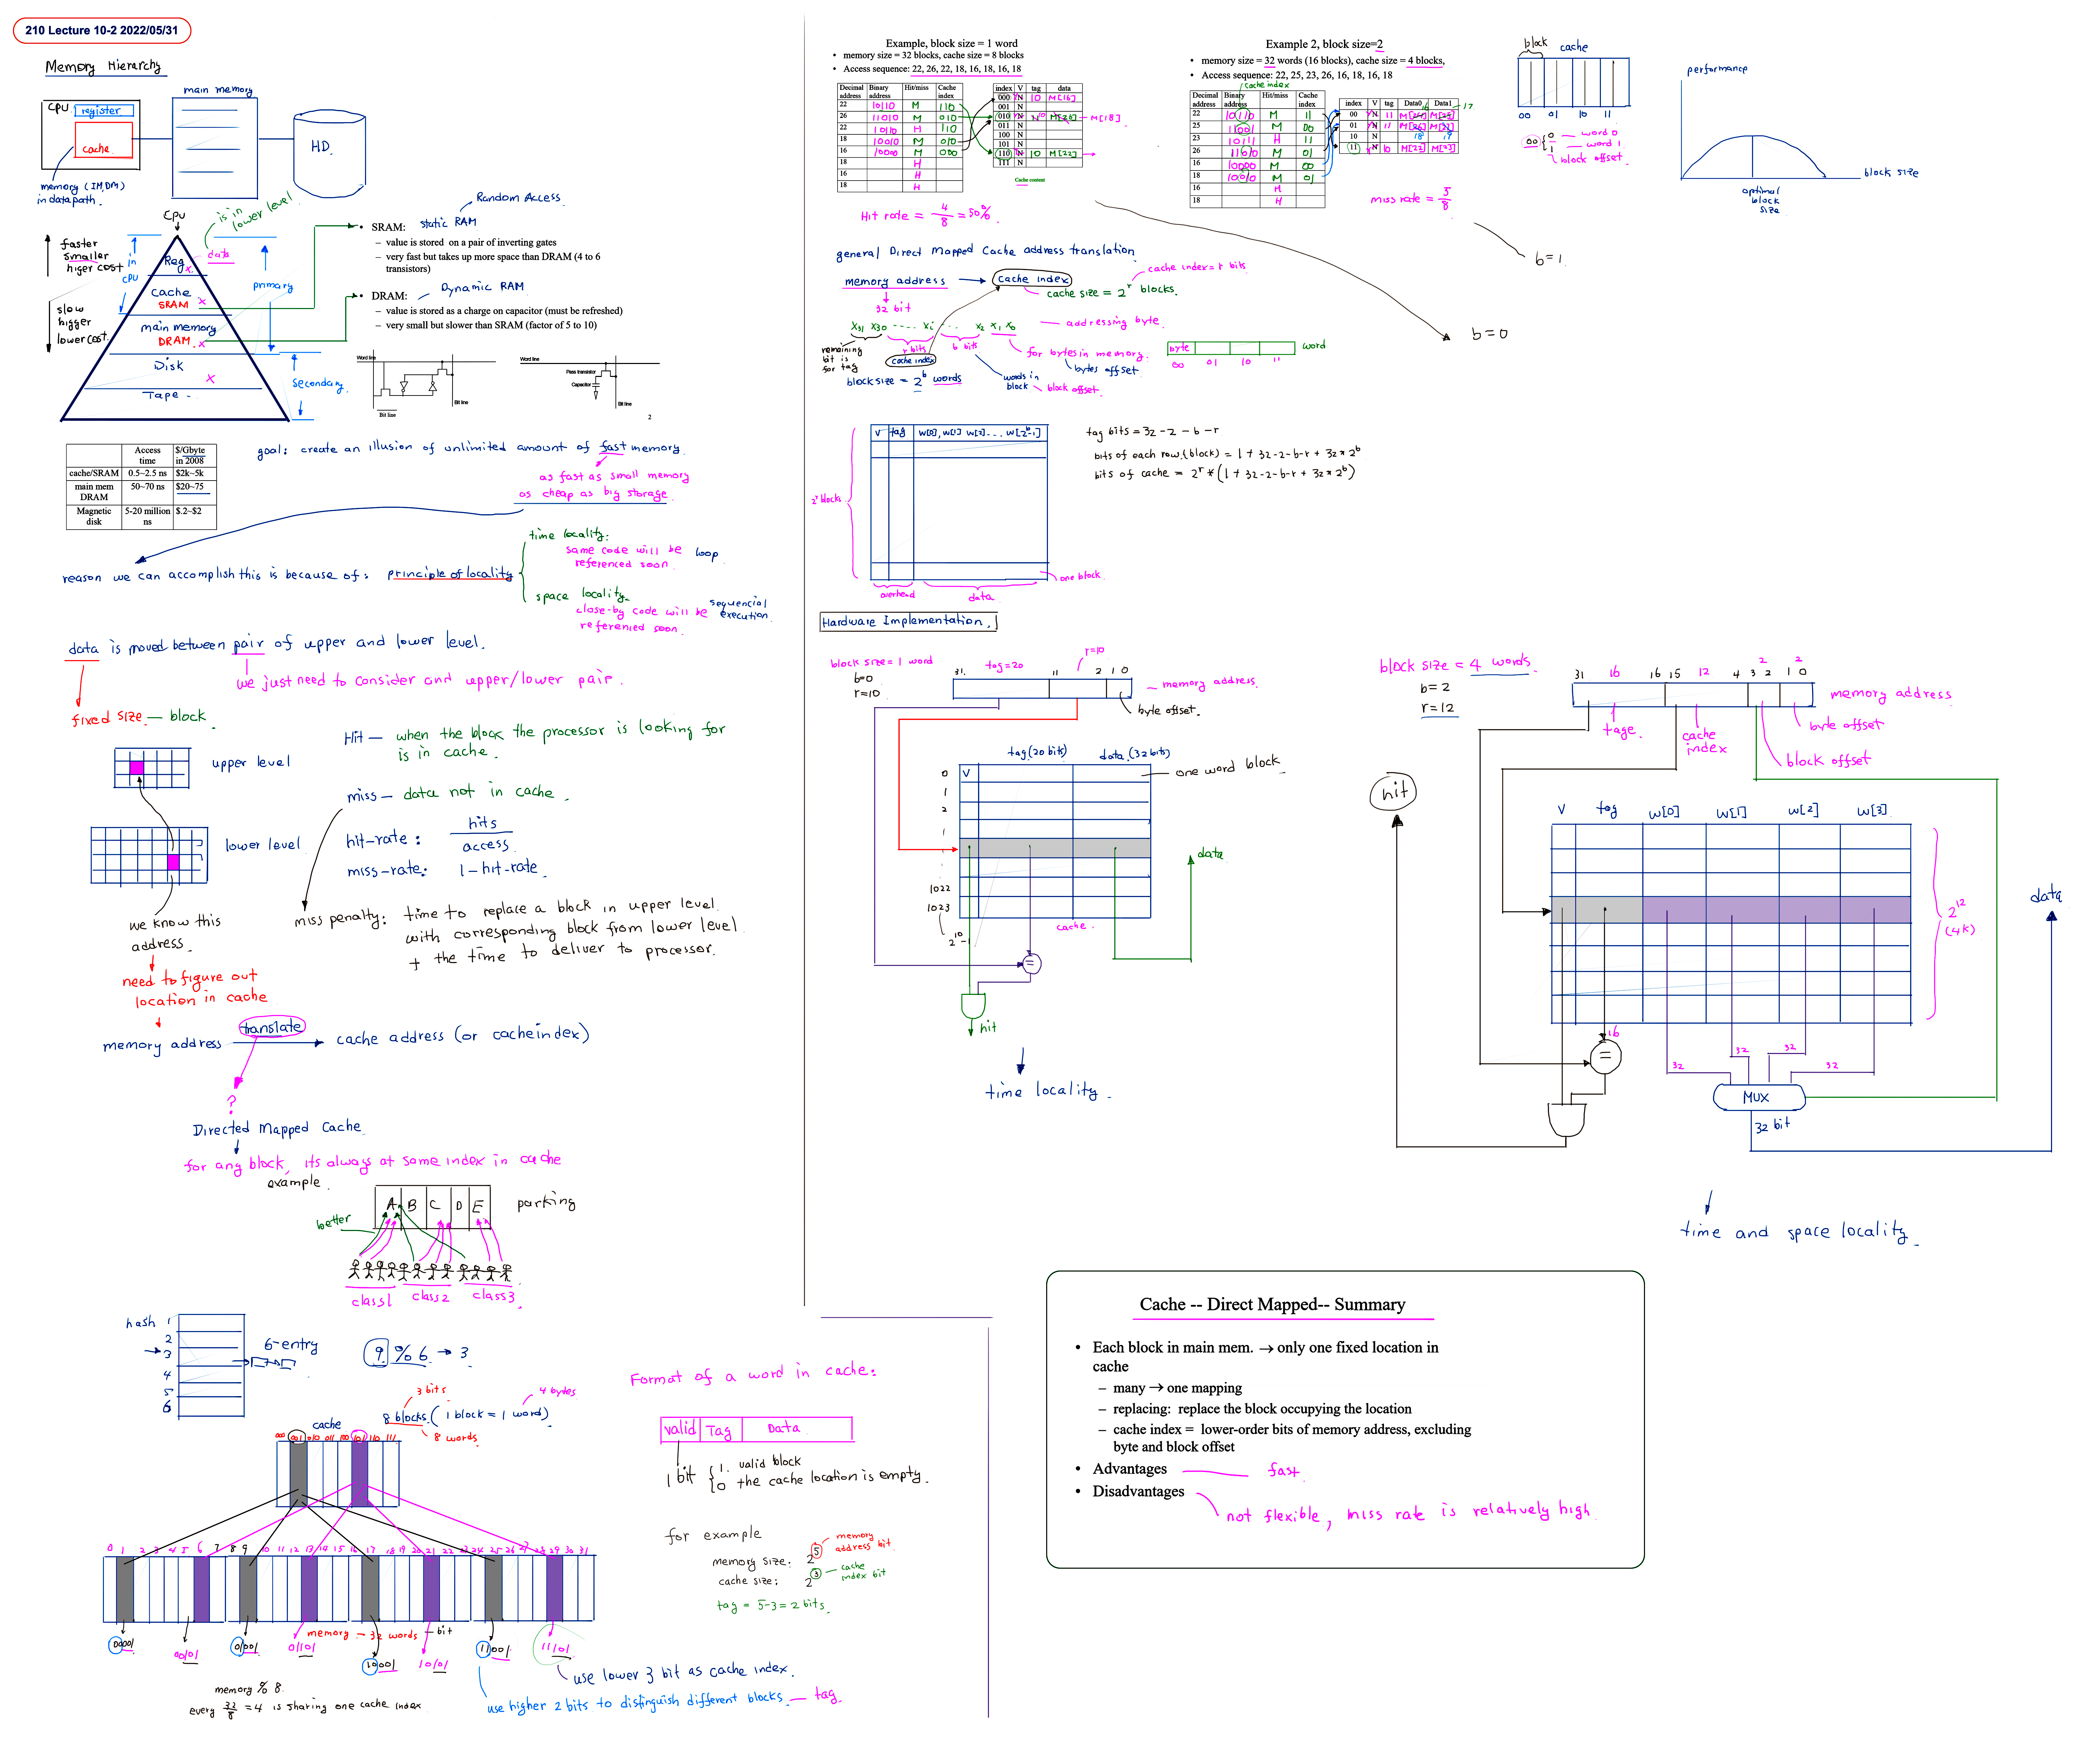 210 Lecture 10-2 2022/05/31
Memory Hierarchy
CPU
register
cache
memory (IM, DM)
in data path.
main memory
HD
CPU
is in
lower level
data
faster
smaller
higer cost
slow
bigger
lower cost
in
CPU
Reg
Cache
SRAM
main memory
DRAM
Disk
Tape
primary
Secondary
Random Access
• SRAM: static RAM
– value is stored on a pair of inverting gates
– very fast but takes up more space than DRAM (4 to 6
transistors)
• DRAM: Dynamic RAM
– value is stored as a charge on capacitor (must be refreshed)
– very small but slower than SRAM (factor of 5 to 10)
Word line
Bit line
Bit line
Word line
Pass transistor
Capacitor
Bit line
2
Access time $/Gbyte in 2008
cache/SRAM 0.5~2.5 ns $2k~5k
main mem DRAM 50~70 ns $20~75
Magnetic disk 5-20 million ns $.2~$2
goal: create an illusion of unlimited amount of fast memory
as fast as small memory
as cheap as big storage
reason we can accomplish this is because of: principle of locality
time locality:
same code will be loop
referenced soon
space locality
close-by code will be sequencial
referenced soon. execution
data is moved between pair of upper and lower level.
we just need to consider and upper/lower pair.
fixed size — block
upper level
lower level
we know this
address
need to figure out
location in cache
Hit — when the block the processor is looking for
is in cache
miss — data not in cache
hit-rate: hits
access
miss-rate: 1 - hit-rate
miss penalty: time to replace a block in upper level
with corresponding block from lower level
+ the time to deliver to processor.
memory address translate cache address (or cache index)
?
Directed Mapped Cache
for any block, its always at same index in cache
example
A B C D E parking
better
class1 class2 class3
hash 1
2
3
4
5
6
6-entry
9 % 6 → 3
3 bits
4 bytes
8 blocks (1 block = 1 word)
8 words
cache
000 001 010 011 100 101 110 111
0 1 2 3 4 5 6 7 8 9 10 11 12 13 14 15 16 17 18 19 20 21 22 23 24 25 26 27 28 29 30 31
memory — 32 words — bit
00001 00101 01001 01101 10001 10101 11001 11101
use lower 3 bit as cache index.
use higher 2 bits to distinguish different blocks — tag
memory % 8
every 32/8 = 4 is sharing one cache index
Format of a word in cache:
valid Tag Data
1 bit { 1. valid block
0 the cache location is empty.
for example
memory size: 2^5 memory address bit
cache size: 2^3 — cache index bit
tag = 5-3 = 2 bits
Example, block size = 1 word
• memory size = 32 blocks, cache size = 8 blocks
• Access sequence: 22, 26, 22, 18, 16, 18, 16, 18
Decimal address Binary address Hit/miss Cache index
22 10110 M 110
26 11010 M 010
22 10110 H 110
18 10010 M 010
16 10000 M 000
18 H
16 H
18 H
index V tag data
000 Y 10 M[16]
001 N
010 N 10 M[26] — M[18]
011 N
100 N
101 N
110 N 10 M[22]
111 N
Cache content
Hit rate = 4/8 = 50%
Example 2, block size=2
• memory size = 32 words (16 blocks), cache size = 4 blocks,
• Access sequence: 22, 25, 23, 26, 16, 18, 16, 18
cache index
Decimal address Binary address Hit/miss Cache index
22 10110 M 11
25 11001 M 00
23 10111 H 11
26 11010 M 01
16 10000 M 00
18 10010 M 01
16 H
18 H
index V tag Data0 Data1
16 17
00 N 11
01 N 11
18 19
10 N
11 N 10 M[22] M[23]
miss rate = 5/8
b=1
b=0
block cache
00 01 10 11
00 { 0 — word 0
1 — word 1
block offset
performance
optimal
block
size
block size
general Direct Mapped Cache address translation
memory address → cache index
32 bit
cache index = r bits
cache size = 2^r blocks
x31 x30 ---- xi --- x2 x1 x0 — addressing byte
remaining
bit is
for tag
r bits
b bits
cache index
for bytes in memory
bytes offset
words in
block — block offset
block size = 2^b words
byte word
00 01 10 11
V tag w[0], w[1] w[2] ... w[2^b-1]
2^r blocks
one block
overhead data
tag bits = 32 - 2 - b - r
bits of each row (block) = 1 + 32-2-b-r + 32 * 2^b
bits of cache = 2^r * (1 + 32-2-b-r + 32 * 2^b)
Hardware Implementation.
block size = 1 word
b=0
r=10
31 tag=20 11 r=10 2 1 0
memory address
byte offset
V tag (20 bits) data (32 bits)
one word block
0
1
2
1022
1023
2^10 - 1
cache
=
data
hit
time locality
block size = 4 words
b = 2
r = 12
31 16 16 15 12 4 3 2 2 2 1 0
memory address
tage
cache
index
block offset
byte offset
hit
V tag w[0] w[1] w[2] w[3]
2^12
(4k)
data
16
=
32 32 32 32
MUX
32 bit
time and space locality
Cache -- Direct Mapped-- Summary
• Each block in main mem. → only one fixed location in
cache
– many → one mapping
– replacing: replace the block occupying the location
– cache index = lower-order bits of memory address, excluding
byte and block offset
• Advantages — fast
• Disadvantages
not flexible, miss rate is relatively high